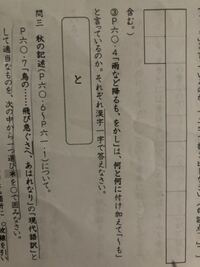 含む。）
③P六〇・4「雨など降るも、をかし」は、何と何に付け加えて「～も」
と言っているのか。それぞれ漢字一字で答えなさい。
と
問三 秋の記述（P六〇・6～P六一・1）について、
P六〇・7「鳥の……飛び急ぐさへ、あはれなり」の「現代語訳」と
して適当なものを、次の中から一つ選び番を〇で囲みなさい。